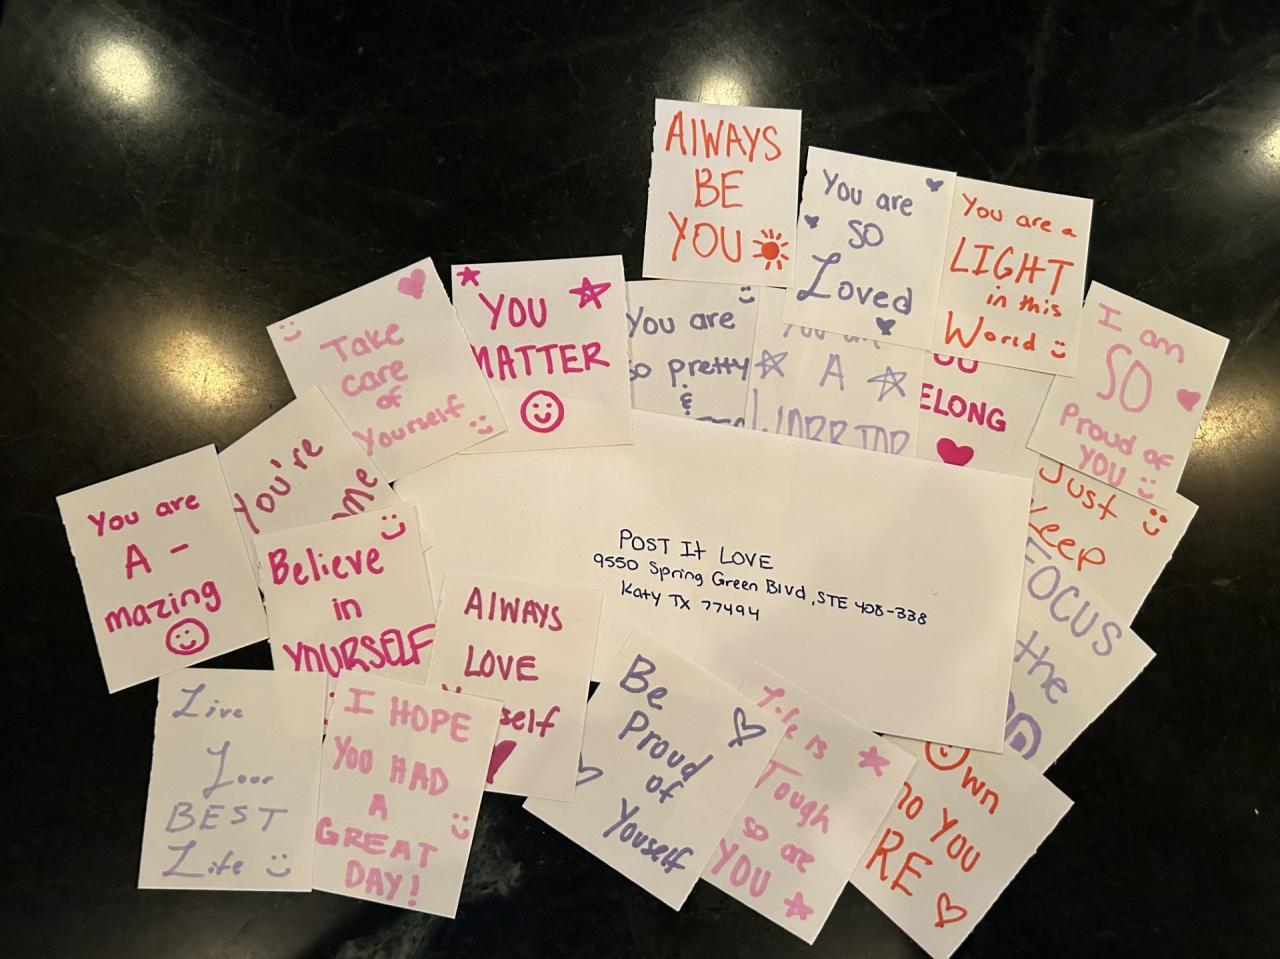 AlWAYS
BE
YOU
You are
SO
Loved
You are a
LIGHT
in this
World
I am
SO
Proud of
YOU
Take
care
of
Yourself
YOU
MATTER
You are
so pretty
&
A
ELONG
Just
keep
FOCUS
the
You're
You are
A -
mazing
Believe
in
YOURSELF
AlWAYS
LOVE
self
POST It LOVE
9550 Spring Green Blvd, STE 408-338
Katy TX 77494
Live
Your
BEST
Life
I HOPE
YOU HAD
A
GREAT
DAY!
Be
Proud
of
Youself
Life is
Tough
so are
YOU
Own
YOU
RE